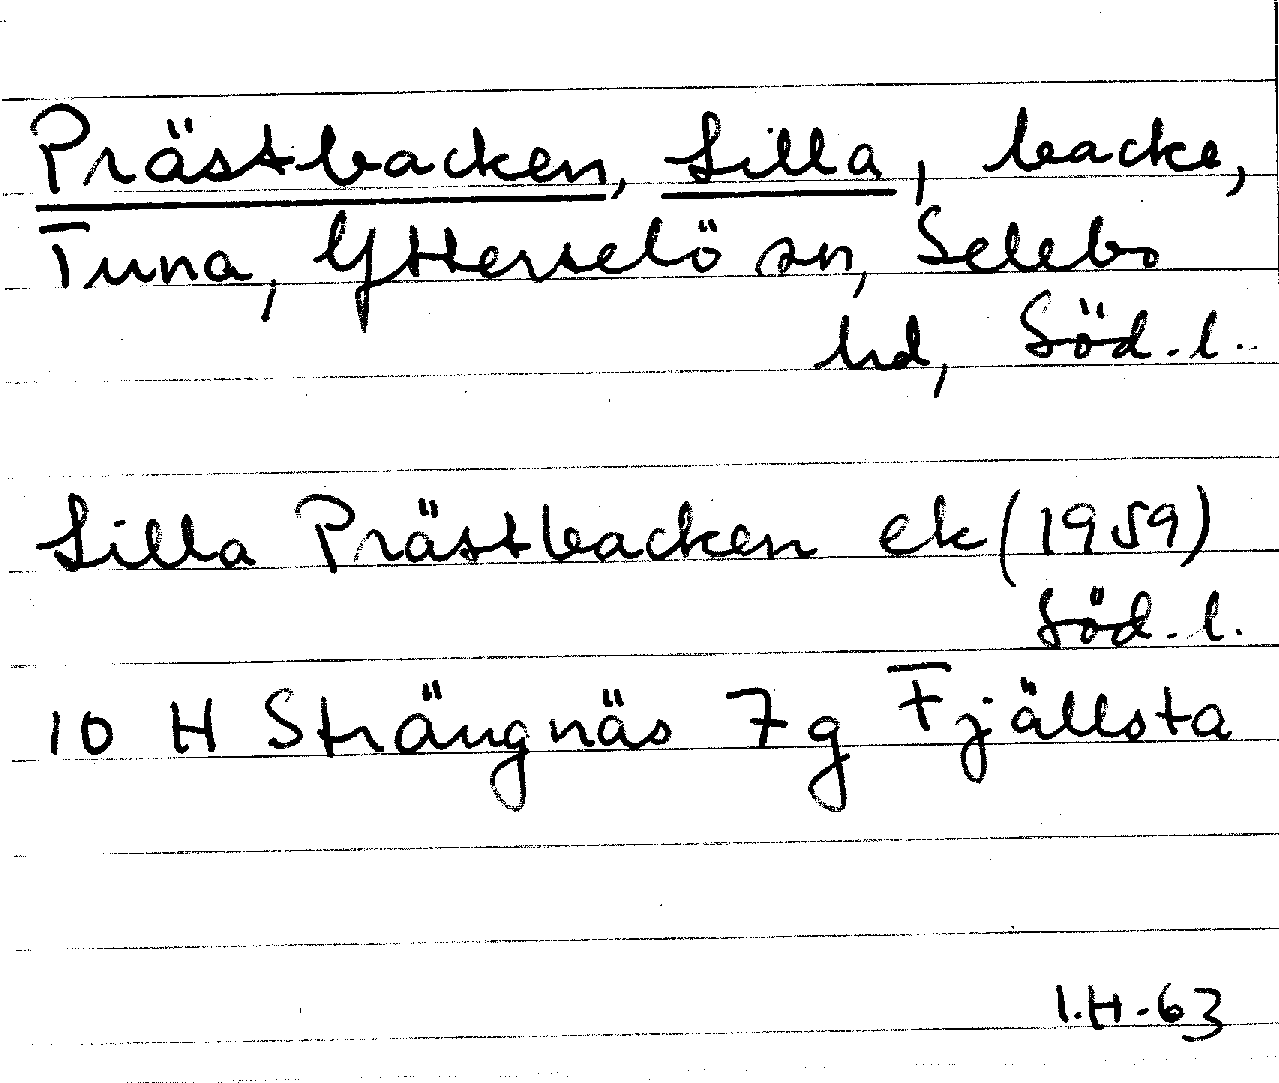 Prästbacken, Lilla, backe,
Tuna, Ytterselö sn, Selebo
hd, Söd. l.
Lilla Prästbacken ek (1959)
Söd. l.
10 H Strängnäs 7 g Fjällsta
I.H.-63